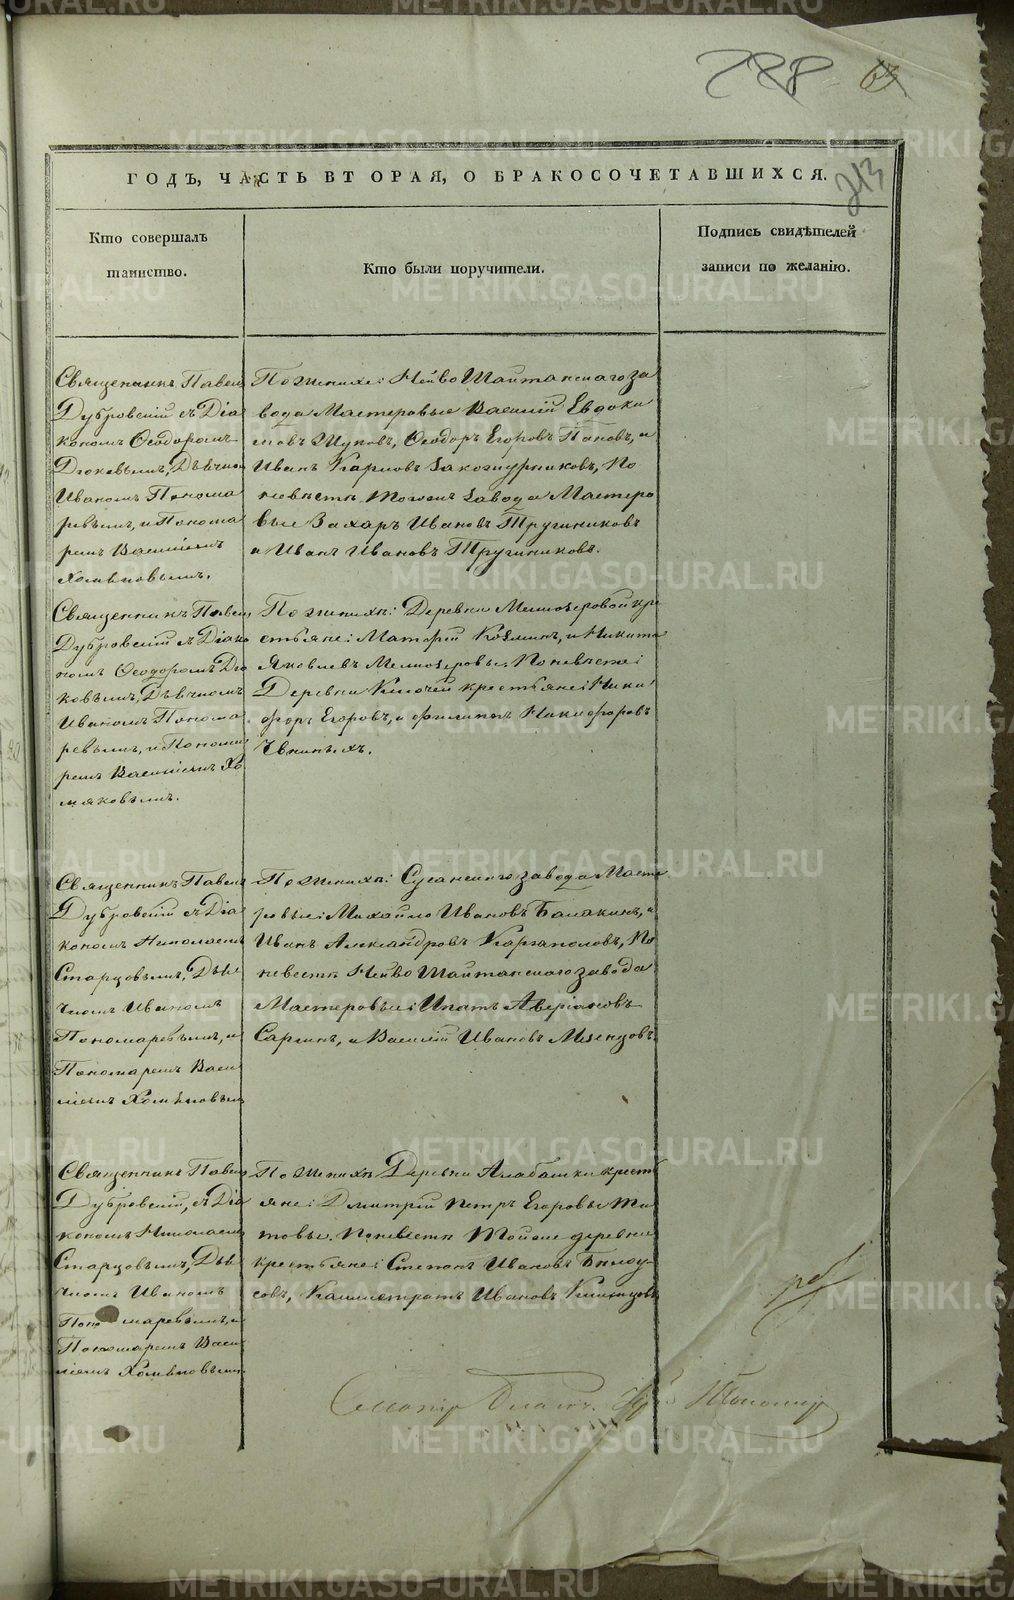 288
63
213
ГОДЪ, ЧАСТЬ ВТОРАЯ, О БРАКОСОЧЕТАВШИХСЯ.
Кто совершалъ
таинство.
Кто были поручители.
Подпись свидѣтелей
записи по желанію.
Священникъ Павелъ
Дубровскій съ Діа
кономъ Ѳеодоромъ
Дьячкомъ
Иваномъ Понома
ревымъ, и Понома
ремъ Василіемъ
Хомяковымъ.
По женихѣ: Нейво Шайтанскаго за
вода Мастеровые Василій Евдоки
мовъ Жуковъ, Ѳеодоръ Егоровъ Поповъ, и
Иванъ Карповъ По
невѣстѣ, тогоже завода Мастеро
вые Захаръ Ивановъ
и Иванъ Ивановъ
Священникъ Павелъ
Дубровскій съ Діако
номъ Ѳеодоромъ
Дьячкомъ
Иваномъ Понома
ревымъ, и Понома
ремъ Василіемъ Хо
мяковымъ.
По женихѣ: Деревни Мелкозеровой кре
стьяне: Матвѣй Козминъ, и Никита
Яковлевъ Мелкозеровы. По невѣсте:
Деревни Ключей крестьяне: Ники
форъ Егоровъ, и Филипъ Никифоровъ
Священникъ Павелъ
Дубровскій съ Діа
кономъ Николаемъ
Старцовымъ, Дья
чкомъ Иваномъ
Пономаревымъ, и
Пономаремъ Васи
ліемъ Хомяковымъ
По женихѣ: Сусанскаго завода Масте
ровые: Михайло Ивановъ Балакинъ, и
Иванъ Александровъ Каргаполовъ, По
невестѣ Нейво Шайтанскаго завода
Мастеровые: Ипатъ Аверіановъ
Саргинъ, и Василій Ивановъ Мезенцовъ.
Священникъ Павелъ
Дубровскій, съ Діа
кономъ Николаемъ
Старцовымъ, Дья
чкомъ Иваномъ
Пономаревымъ, и
Пономаремъ Васи
ліемъ Хомяковымъ
По женихѣ Деревни Алабашки кресть
яне: Дмитрій Петръ Егоровы Ти
товы. По невѣстѣ Тойже деревни
крестьяне: Степанъ Ивановъ Бѣлоу
совъ, Калистратъ Ивановъ
METRIKI.GASO-URAL.RU